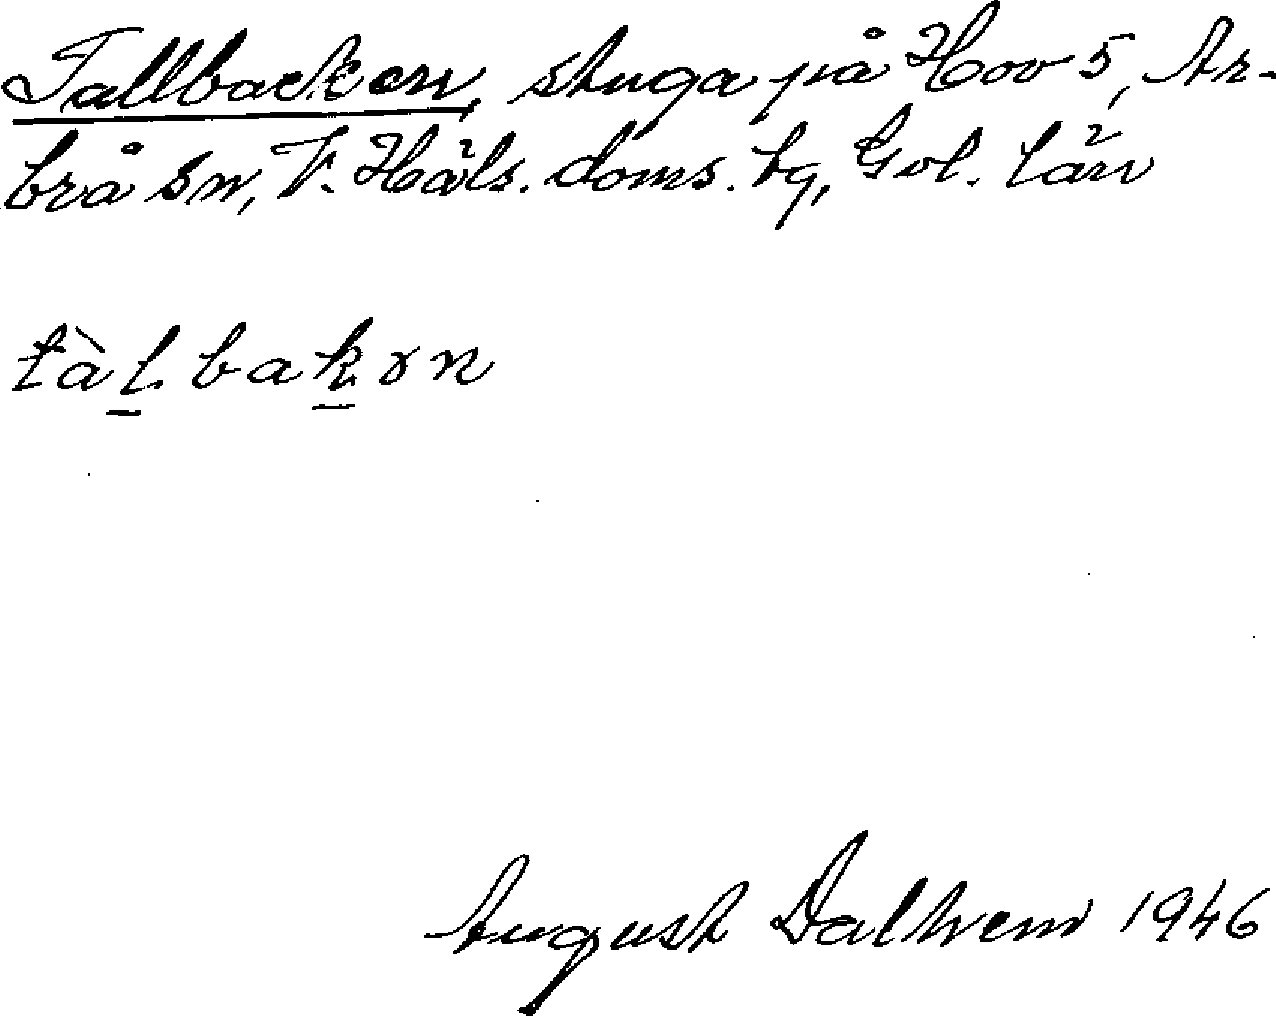 Tallbacken, stuga på Hov 5, Ar-
brå sn, V. Häls. doms. tg, Gvl. län
tàl̲bak̲ɤn
August Dalhem 1946